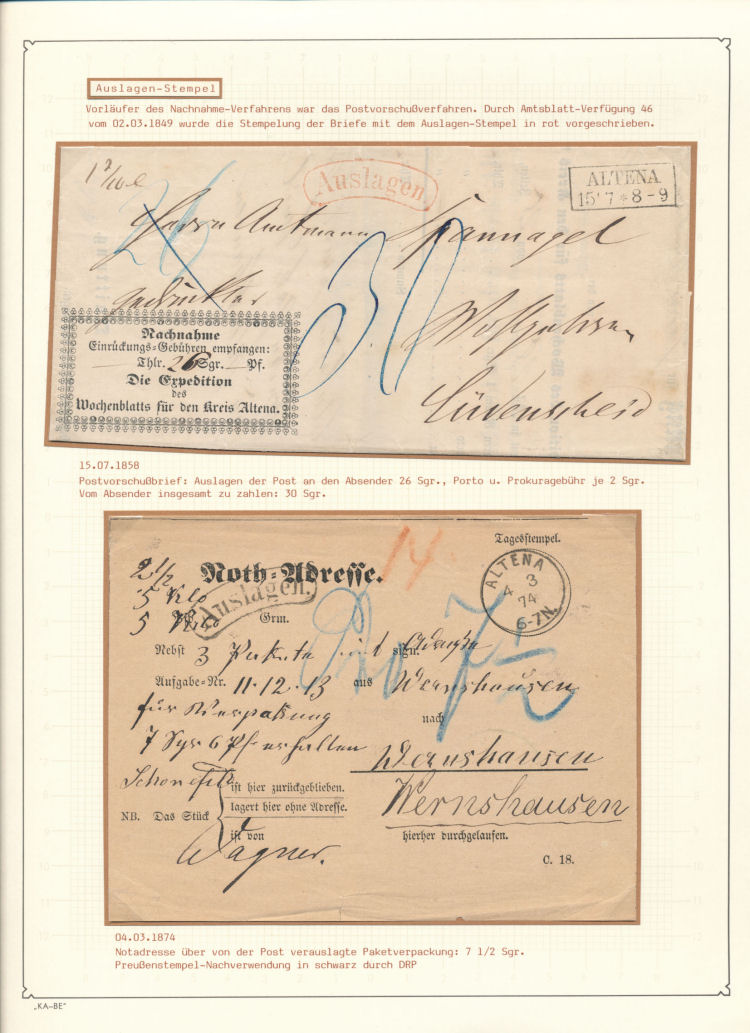 Auslagen-Stempel
Vorläufer des Nachnahme-Verfahrens war das Postvorschußverfahren. Durch Amtsblatt-Verfügung 46
vom 02.03.1849 wurde die Stempelung der Briefe mit dem Auslagen-Stempel in rot vorgeschrieben.
Auslagen.
ALTENA
15 7 * 8-9
26
Herrn Amtmann Spannagel
30
Lüdenscheid
Nachnahme
Einrückungs-Gebühren empfangen:
Thlr. 26 Sgr. Pf.
Die Expedition
des
Wochenblatts für den Kreis Altena.
15.07.1858
Postvorschußbrief: Auslagen der Post an den Absender 26 Sgr., Porto u. Prokuragebühr je 2 Sgr.
Vom Absender insgesamt zu zahlen: 30 Sgr.
Tagesstempel.
14
ALTENA
4 3
74
6-7N.
2 1/2
Noth-Adresse.
5 Kilo
Auslagen.
5 Kilo Grm.
7 1/2
Nebst 3 Pakete mit sign.
Aufgabe-Nr. 11. 12. 13 aus Wernshausen
für Verpackung
nach
7 Sgr 6 Pf erhalten
Wernshausen
ist hier zurückgeblieben.
lagert hier ohne Adresse.
Wernshausen
NB. Das Stück
ist von
hierher durchgelaufen.
Wagner.
C. 18.
04.03.1874
Notadresse über von der Post verauslagte Paketverpackung: 7 1/2 Sgr.
Preußenstempel-Nachverwendung in schwarz durch DRP
„KA-BE"